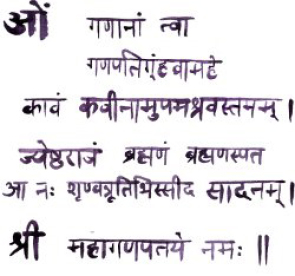 ओं गणानां त्वा
गणपतिग्ंहवामहे
कविं कवीनामुपमश्रवस्तमम् ।
ज्येष्ठराजं ब्रह्मणं ब्रह्मणस्पत
आ नः शृण्वन्नूतिभिस्सीद सादनम् ।
श्री महागणपतये नमः ॥